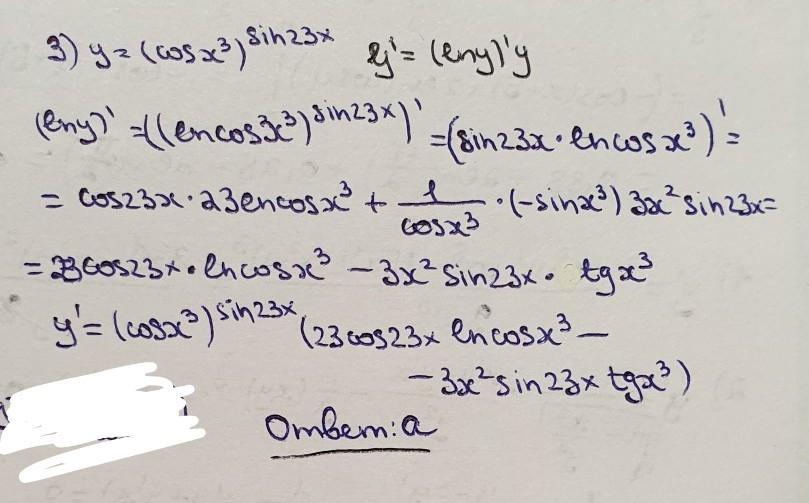 3) y = (cos x³)^sin23x y' = (lny)'y
(lny)' = ((ln cos x³)^sin23x)' = (sin23x · ln cos x³)' =
= cos23x · 23 ln cos x³ + 1/cos x³ · (-sin x³) 3x² sin23x =
= 23 cos23x · ln cos x³ - 3x² sin23x · tg x³
y' = (cos x³)^sin23x (23 cos23x ln cos x³ -
- 3x² sin23x tg x³)
Ответ: а